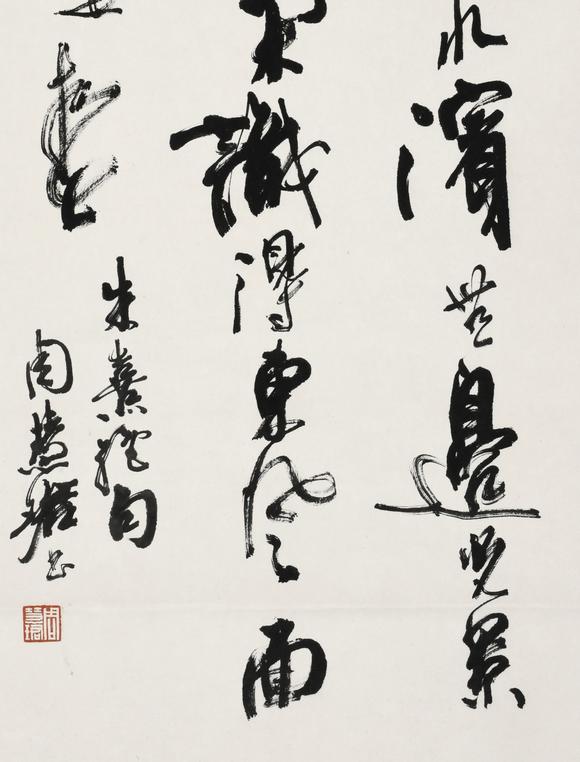 水濱無邊光景
識得東風面
春
朱熹詩句
周慧珺書
周慧珺